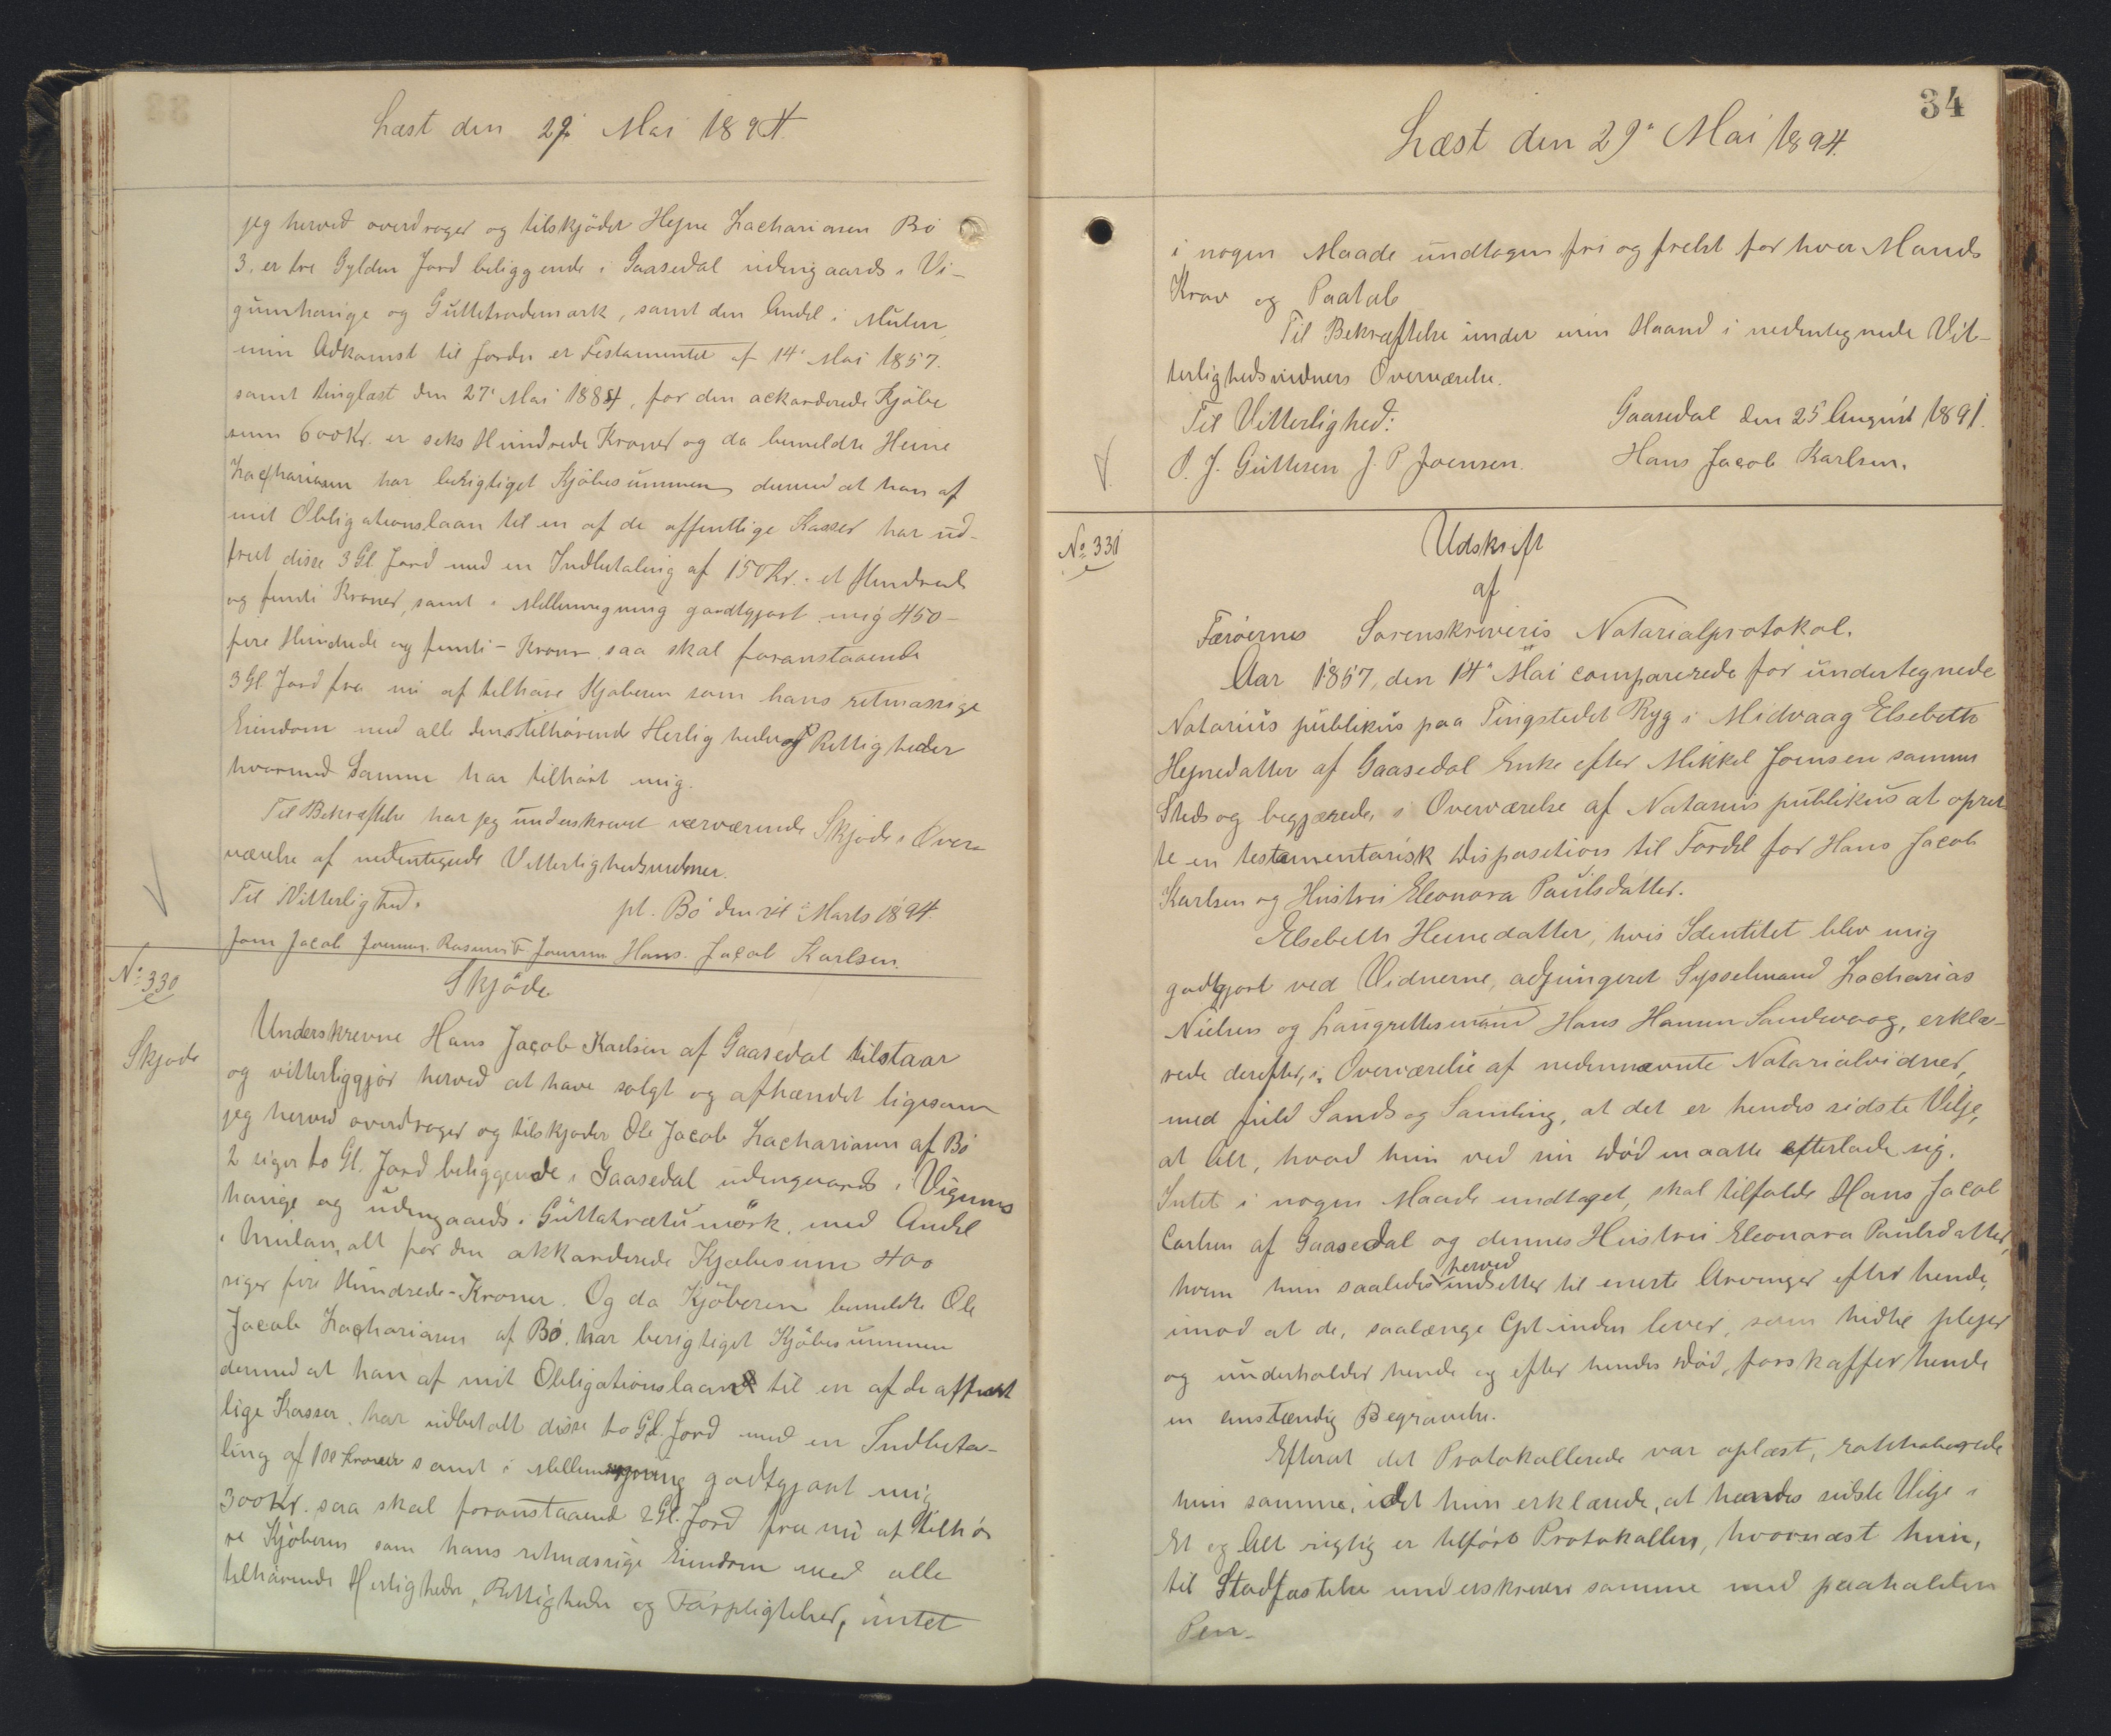 Læst den 29' Mai 1894.
jeg herved overdrager og tilskjöder Hejne Zachariasen Bö
3, er tre Gylden Jord beliggende i Gaasedal udengaards i Vi-
gumhauge og Guttetrademark, samt den Andel i Mulen,
min Adkomst til Jorden er Testamentet af 14' Mai 1857.
samt tinglæst den 27' Mai 1884, for den ackorderede Kjöbe
sum 600 Kr. er seks Hundrede Kroner og da bemeldte Heine
Zachariasen har berigtiget Kjöbesummen dermed at han af
mit Obligationslaan til en af de offentlige Kasser har ud-
friet disse 3 Gl. Jord med en Indbetaling af 150 Kr. et Hundrede
og femti Kroner, samt i Mellemregning godtgjort mig 450-
fire Hundrede og femti - Kroner saa skal foranstaaende
3 Gl. Jord fra nu af tilhöre Kjöberen som hans retmæssige
Eiendom med alle dens tilhörende Herligheder og Rettigheder
hvormed Samme har tilhört mig.
Til Bekræftelse har jeg underskrevet nærværende Skjöde i Over
værelse af nedentegnede Vitterlighedsvidner.
Til Vitterlighed. pt. Bö den 24' Marts 1894
Joen Jacob Joensen. Rasmus F. Joensen Hans Jacob Karlsen.
No 330
Skjöde
Skjøde
Underskrevne Hans Jacob Karlsen af Gaasedal tilstaar
og vitterliggjör herved at have solgt og afhændet ligesom
jeg herved overdrager og tilskjøder Ole Jacob Zachariasen af Bö
2 siger to Gl. Jord beliggende i Gaasedal udengaards i Vigums
hauge og udengaards i Guttatrætumörk, med Andel
i Mulan, alt for den akkorderede Kjøbesum 400
siger fire Hundrede-Kroner. Og da Kjöberen bemeldte Ole
Jacob Zachariasen af Bö har berigtiget Kjöbesummen
dermed at han af mit Obligationslaan til en af de offent
lige Kasser har udbetalt disse to Gl. Jord med en Indbeta-
ling af 100 Kroner samt i Mellemregning godtgjort mig
300 Kr. saa skal foranstaaend 2 Gl. Jord fra nu af tilhö
re Kjöberen som hans retmæssige Eiendom med alle
tilhörende Herligheder, Rettigheder og Forpligtelser, intet
34
Læst den 29' Mai 1894.
i nogen Maade undtagen fri og frelst for hver Mands
Krav og Paatale
Til Bekræftelse under min Haand i nedentegnede Vit-
terlighedsvidners Overværelse.
Til Vitterlighed: Gaasedal den 25 August 1891.
O. J. Guttesen J. P Joensen. Hans Jacob Karlsen.
No 331
Udskrift
af
Færöernes Sorenskriveris Notarialprotokol.
Aar 1857, den 14' Mai comparerede for undertegnede
Notarius publikus paa Tingstedet Ryg i Midvaag Elsebeth
Hejnedatter af Gaasedal Enke efter Mikkel Joensen sammes
Steds og begjærede, i Overværelse af Notarius publikus at opret
te en testamentarisk Disposition til Fordel for Hans Jacob
Karlsen og Hustru Eleonora Paulsdatter.
Elsebeth Heinedatter, hvis Identitet blev mig
godtgjort ved Vidnerne, adjungeret Sysselmand Zacharias
Nielsen og Laugrettesmand Hans Hansen Sandevaag, erklæ-
rede derefter, i Overværelse af nedennævnte Notarialvidner,
med fuld Sands og Samling, at det er hendes sidste Vilje,
at Alt, hvad hun ved sin Död maatte efterlade sig.
Intet i nogen Maade undtaget, skal tilfalde Hans Jacob
Carlsen af Gaasedal og dennes Hustru Eleonora Paulsdatter,
hvem hun saaledes herved indsetter til eneste Arvinger efter hende,
imod at de, saalænge Cpt-inden lever, som hidtil plejer
og underholder hende og efter hendes Död, forskaffer hende
en anstændig Begravelse.
Efterat det Protokollerede var oplæst, ratihaberede
hun samme, idet hun erklærede, at hendes sidste Vilje i
Et og Alt rigtig er tilfört Protokollen, hvornæst hun,
til Stadfæstelse underskrev samme med paaholden
Pen-